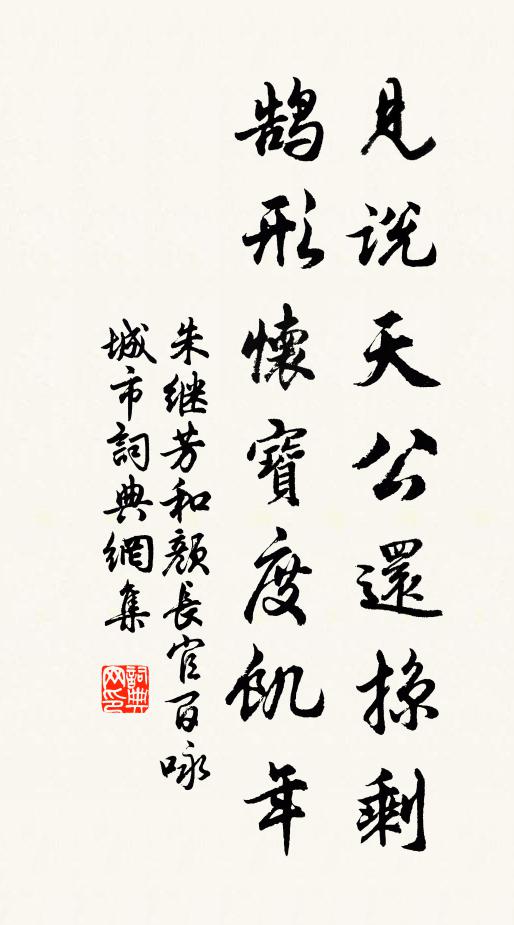 見説天公還掠剩
鵠形懷寶度飢年
朱继芳和顏長官百咏
城市詞典網集
詞典網印